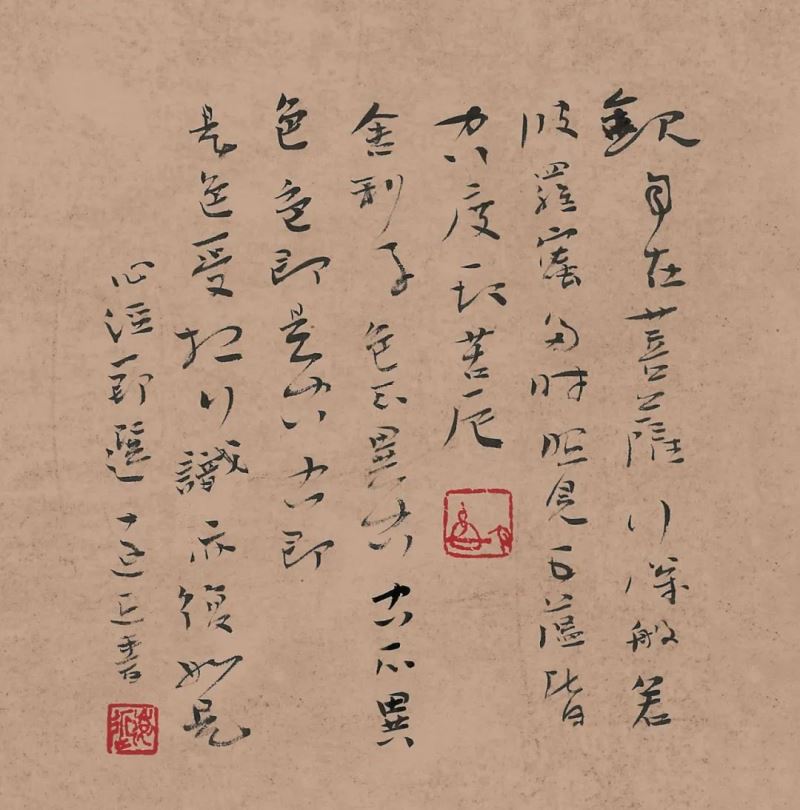 觀自在菩薩行深般若
波羅蜜多時照見五蘊皆
空度一切苦厄
舍利子色不異空空不異
色色即是空空即
是色受想行識亦復如是
心經節選 書